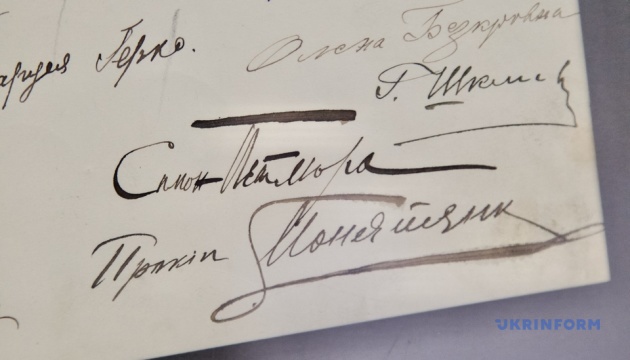 Герко.
Олена Безкровна
Г. Шкля
Симон Петлюра
Прокіп Понятенко
UKRINFORM